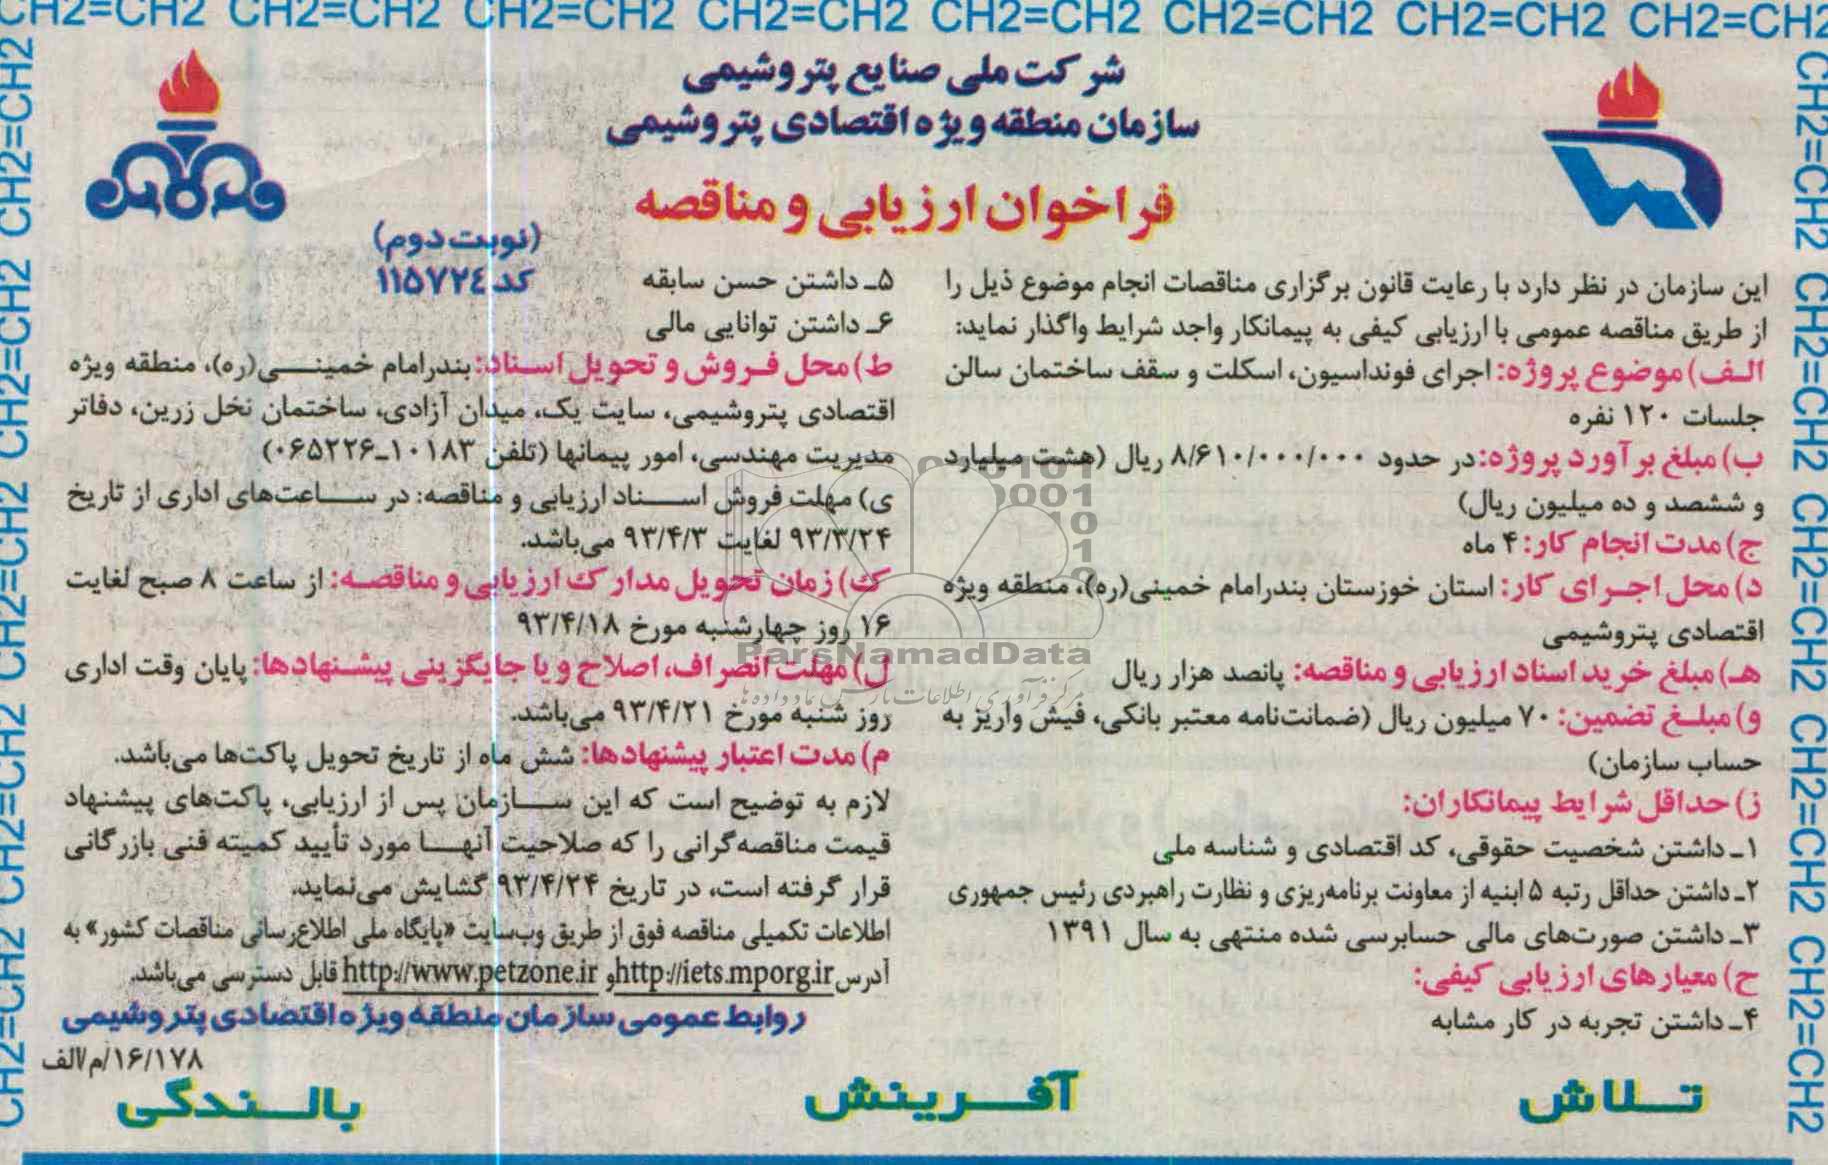 CH2=CH2 CH2=CH2 CH2=CH2 CH2=CH2 CH2=CH2 CH2=CH2 CH2=CH2 CH2=CH2
شرکت ملی صنایع پتروشیمی
سازمان منطقه ویژه اقتصادی پتروشیمی
فراخوان ارزیابی و مناقصه
(نوبت دوم)
کد ۱۱۵۷۲۴
این سازمان در نظر دارد با رعایت قانون برگزاری مناقصات انجام موضوع ذیل را
از طریق مناقصه عمومی با ارزیابی کیفی به پیمانکار واجد شرایط واگذار نماید:
الف) موضوع پروژه: اجرای فونداسیون، اسکلت و سقف ساختمان سالن
جلسات ۱۲۰ نفره
ب) مبلغ برآورد پروژه: در حدود ۸/۶۱۰/۰۰۰/۰۰۰ ریال (هشت میلیارد
و ششصد و ده میلیون ریال)
ج) مدت انجام کار: ۴ ماه
د) محل اجرای کار: استان خوزستان بندرامام خمینی(ره)، منطقه ویژه
اقتصادی پتروشیمی
هـ) مبلغ خرید اسناد ارزیابی و مناقصه: پانصد هزار ریال
و) مبلغ تضمین: ۷۰ میلیون ریال (ضمانت‌نامه معتبر بانکی، فیش واریز به
حساب سازمان)
ز) حداقل شرایط پیمانکاران:
۱ـ داشتن شخصیت حقوقی، کد اقتصادی و شناسه ملی
۲ـ داشتن حداقل رتبه ۵ ابنیه از معاونت برنامه‌ریزی و نظارت راهبردی رئیس جمهوری
۳ـ داشتن صورت‌های مالی حسابرسی شده منتهی به سال ۱۳۹۱
ح) معیارهای ارزیابی کیفی:
۴ـ داشتن تجربه در کار مشابه
۵ـ داشتن حسن سابقه
۶ـ داشتن توانایی مالی
ط) محل فروش و تحویل اسناد: بندرامام خمینی(ره)، منطقه ویژه
اقتصادی پتروشیمی، سایت یک، میدان آزادی، ساختمان نخل زرین، دفاتر
مدیریت مهندسی، امور پیمانها (تلفن ۱۰۱۸۳ـ۰۶۵۲۲۶)
ی) مهلت فروش اسناد ارزیابی و مناقصه: در ساعت‌های اداری از تاریخ
۹۳/۳/۲۴ لغایت ۹۳/۴/۳ می‌باشد.
ک) زمان تحویل مدارک ارزیابی و مناقصه: از ساعت ۸ صبح لغایت
۱۶ روز چهارشنبه مورخ ۹۳/۴/۱۸
ل) مهلت انصراف، اصلاح و یا جایگزینی پیشنهادها: پایان وقت اداری
روز شنبه مورخ ۹۳/۴/۲۱ می‌باشد.
م) مدت اعتبار پیشنهادها: شش ماه از تاریخ تحویل پاکت‌ها می‌باشد.
لازم به توضیح است که این سازمان پس از ارزیابی، پاکت‌های پیشنهاد
قیمت مناقصه‌گرانی را که صلاحیت آنها مورد تأیید کمیته فنی بازرگانی
قرار گرفته است، در تاریخ ۹۳/۴/۲۴ گشایش می‌نماید.
اطلاعات تکمیلی مناقصه فوق از طریق وب‌سایت «پایگاه ملی اطلاع‌رسانی مناقصات کشور» به
آدرس http://iets.mporg.ir و http://www.petzone.ir قابل دسترسی می‌باشد.
روابط عمومی سازمان منطقه ویژه اقتصادی پتروشیمی
۱۶/۱۷۸/م/الف
تلاش آفرینش بالندگی
ParsNamadData
مرکز فرآوری اطلاعات پارس نماد داده‌ها